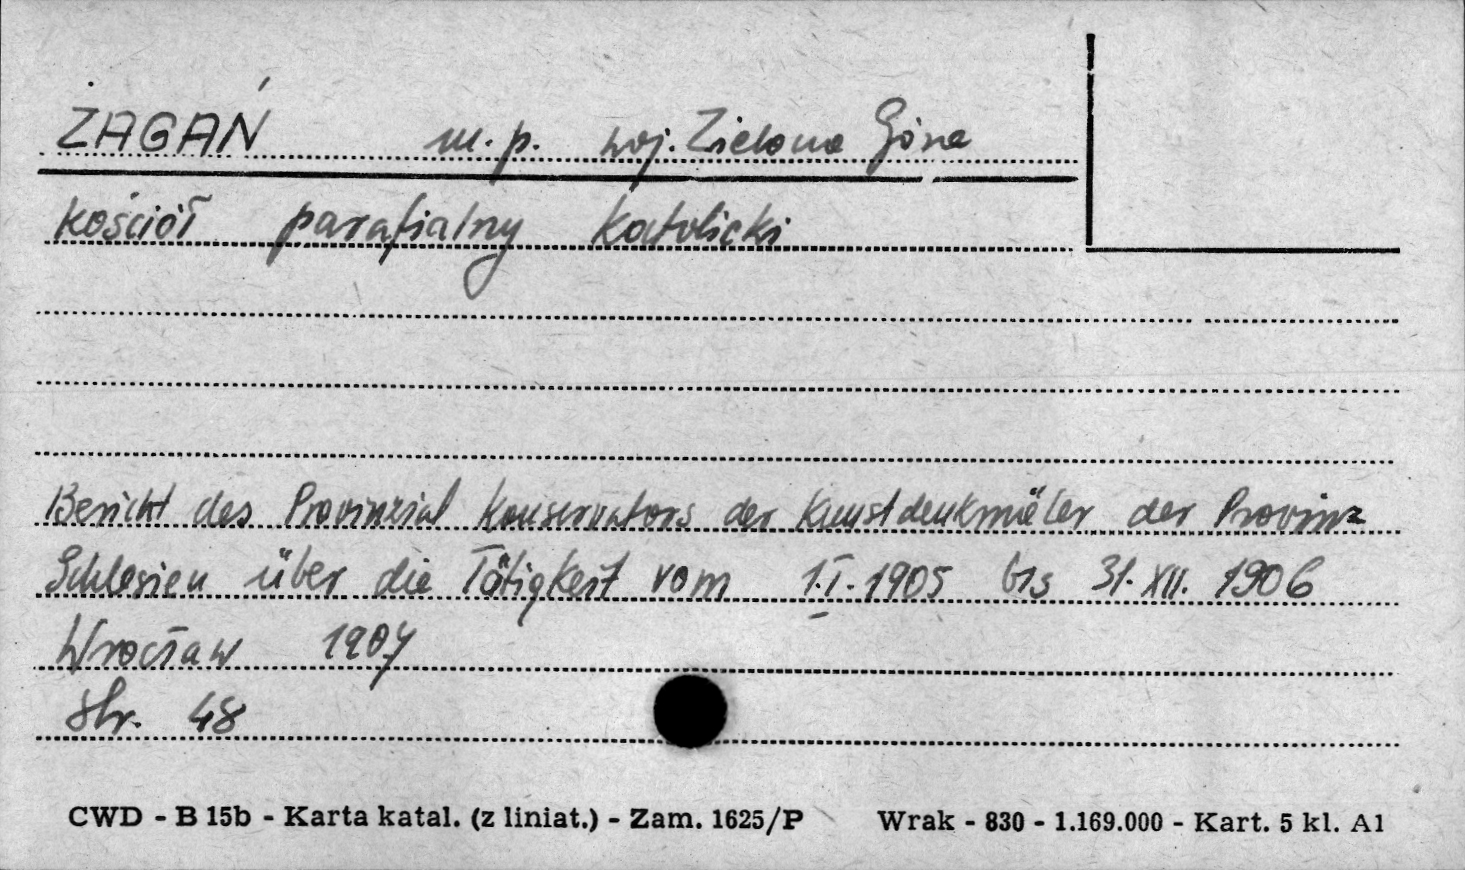 ŻAGAŃ m.p. woj. Zielona Góra
Kościół parafialny Katolicki
Bericht des Provinzial Konservators der Kunstdenkmäler der Provinz
Schlesien über die Tätigkeit vom 1.I.1905 bis 31.XII.1906
Wrocław 1907
str. 48
CWD - B 15b - Karta katal. (z liniat.) - Zam. 1625/P Wrak - 830 - 1.169.000 - Kart. 5 kl. A1